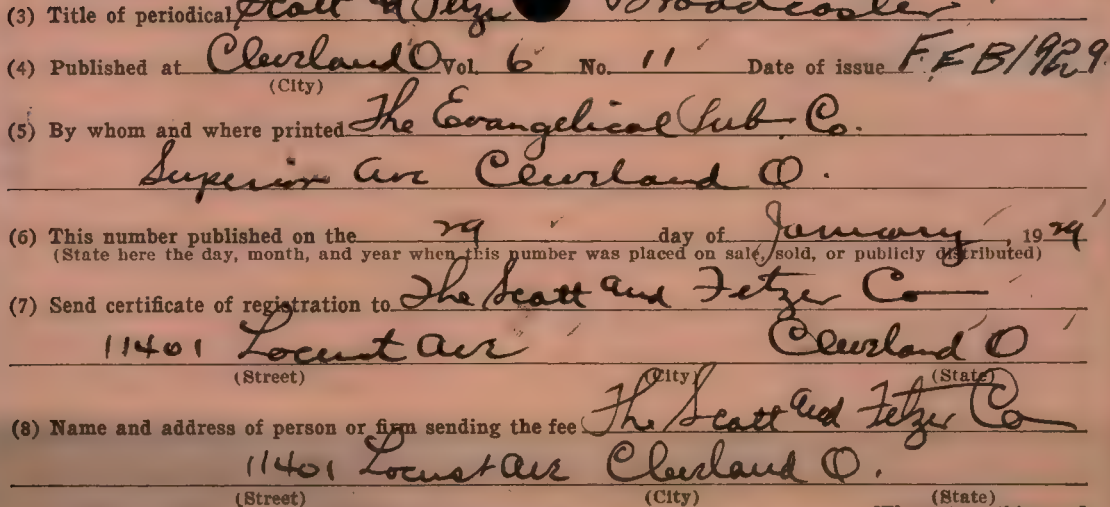 (3) Title of periodical Scott & Fetzer Broadcaster
(4) Published at Cleveland O Vol. 6 No. 11 Date of issue FEB 1929
(City)
(5) By whom and where printed The Evangelical Pub. Co.
Superior Ave Cleveland O.
(6) This number published on the 29 day of January, 19 29
(State here the day, month, and year when this number was placed on sale, sold, or publicly distributed)
(7) Send certificate of registration to The Scott and Fetzer Co
11401 Locust Ave Cleveland O
(Street) (City) (State)
(8) Name and address of person or firm sending the fee The Scott and Fetzer Co
11401 Locust Ave Cleveland O.
(Street) (City) (State)